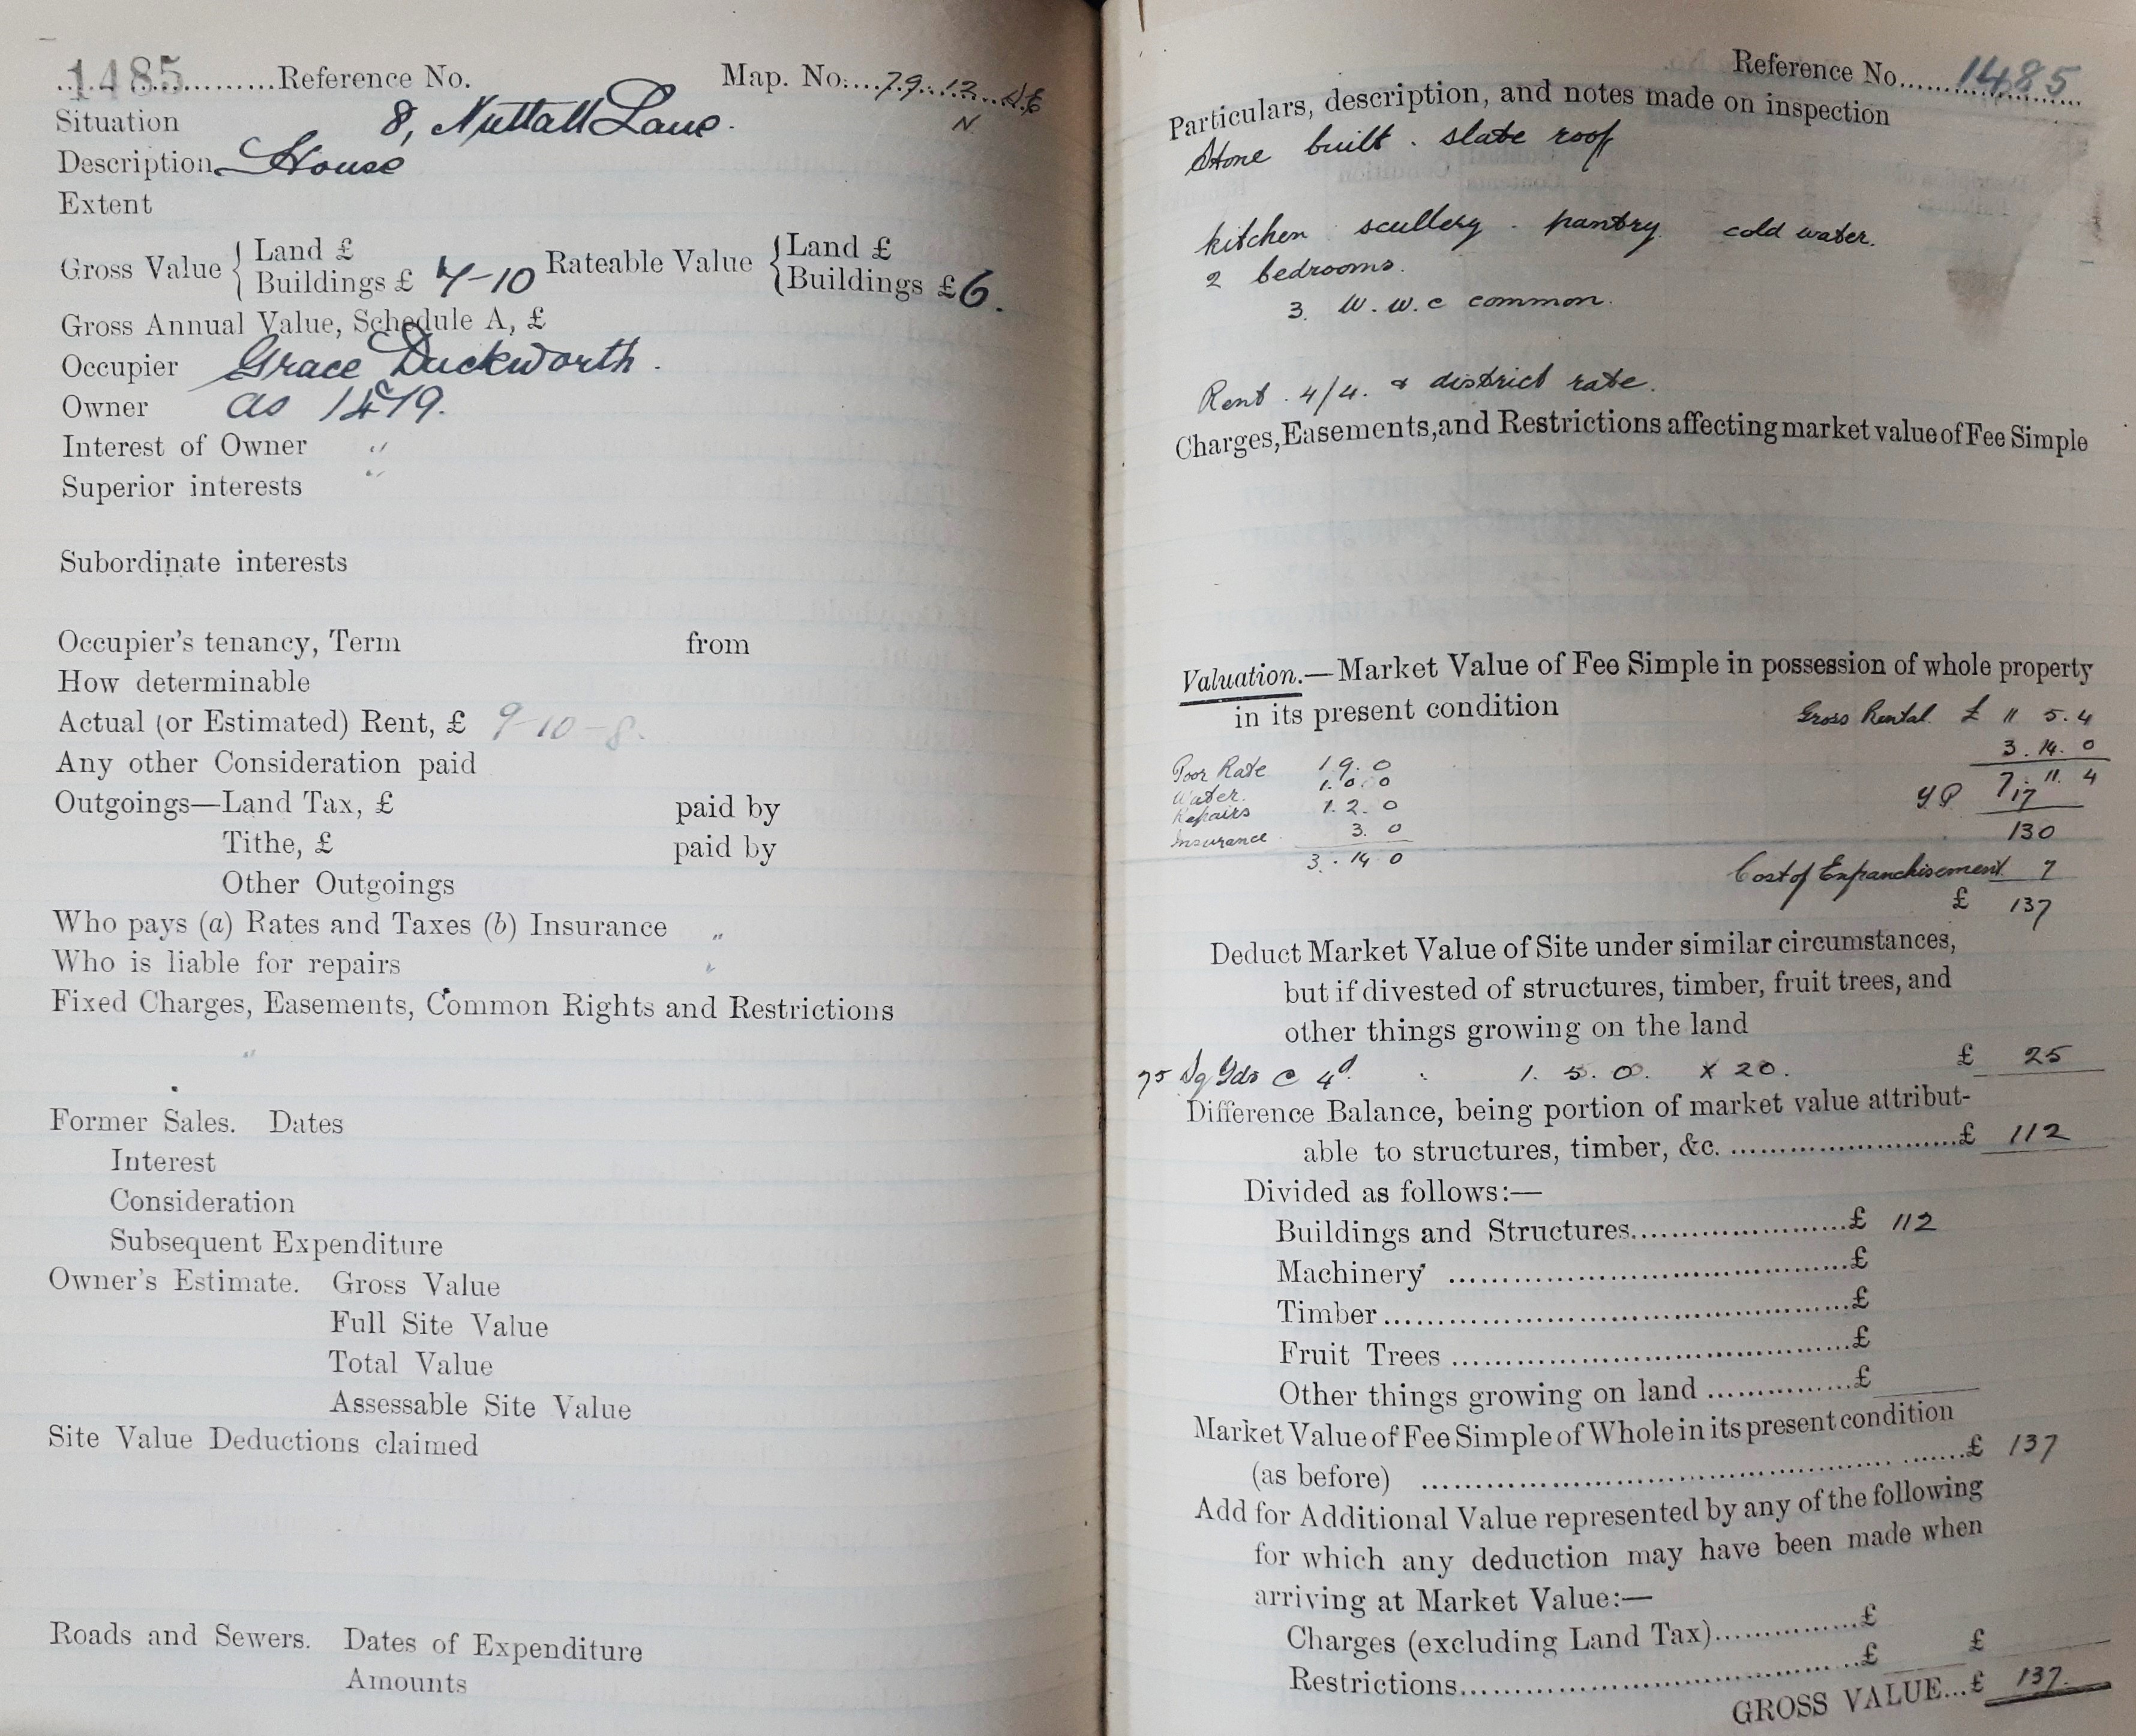 1485 Reference No. Map. No. 79.12
N
Situation 8, Nuttall Lane.
Description House
Extent
Gross Value { Land £
Buildings £ 7-10 Rateable Value { Land £
Buildings £ 6.
Gross Annual Value, Schedule A, £
Occupier Grace Duckworth.
Owner as 1479.
Interest of Owner "
Superior interests "
Subordinate interests
Occupier's tenancy, Term from
How determinable
Actual (or Estimated) Rent, £ 9-10-8.
Any other Consideration paid
Outgoings—Land Tax, £ paid by
Tithe, £ paid by
Other Outgoings
Who pays (a) Rates and Taxes (b) Insurance "
Who is liable for repairs "
Fixed Charges, Easements, Common Rights and Restrictions
"
Former Sales. Dates
Interest
Consideration
Subsequent Expenditure
Owner's Estimate. Gross Value
Full Site Value
Total Value
Assessable Site Value
Site Value Deductions claimed
Roads and Sewers. Dates of Expenditure
Amounts
Reference No. 1485
Particulars, description, and notes made on inspection
Stone built . slate roof
kitchen scullery . pantry cold water.
2 bedrooms.
3 W.W.C common.
Rent . 4/4. & district rate.
Charges, Easements, and Restrictions affecting market value of Fee Simple
Valuation.—Market Value of Fee Simple in possession of whole property
in its present condition
Gross Rental £ 11 5.4
3.14.0
7.11.4
Y P 17
130
Cost of Enfranchisement 7
£ 137
Poor Rate 1.9.0
Water. 1.0.0
Repairs 1.2.0
Insurance 3.0
3.14.0
Deduct Market Value of Site under similar circumstances,
but if divested of structures, timber, fruit trees, and
other things growing on the land
75 Sq Yds @ 4d. : 1.5.0. x 20. £ 25
Difference Balance, being portion of market value attribut-
able to structures, timber, &c. £ 112
Divided as follows:—
Buildings and Structures £ 112
Machinery £
Timber £
Fruit Trees £
Other things growing on land £
Market Value of Fee Simple of Whole in its present condition
(as before) £ 137
Add for Additional Value represented by any of the following
for which any deduction may have been made when
arriving at Market Value:—
Charges (excluding Land Tax) £
Restrictions £ £
GROSS VALUE...£ 137